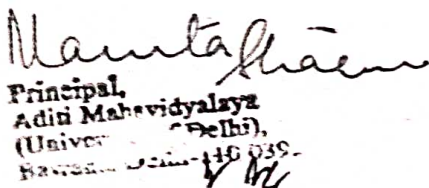 Mamta Sharma
Principal,
Aditi Mahavidyalaya
(Univer Delhi),
110 039.